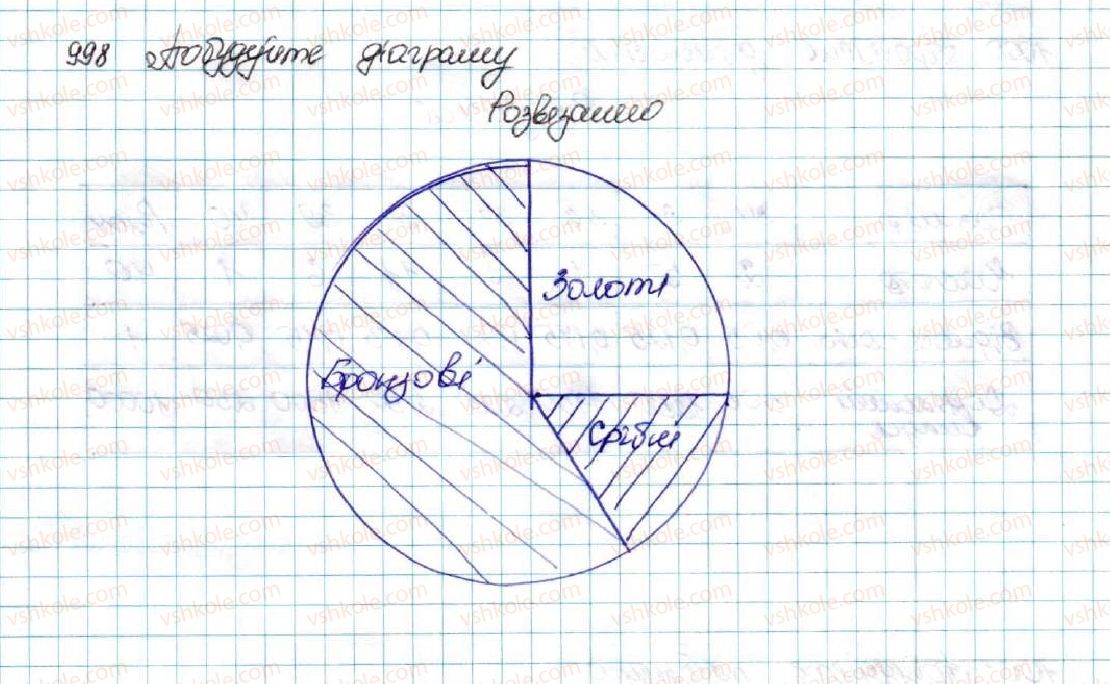 998 Побудуйте діаграму
Розвязання
Золоті
Бронзові
Срібні
vshkole.com